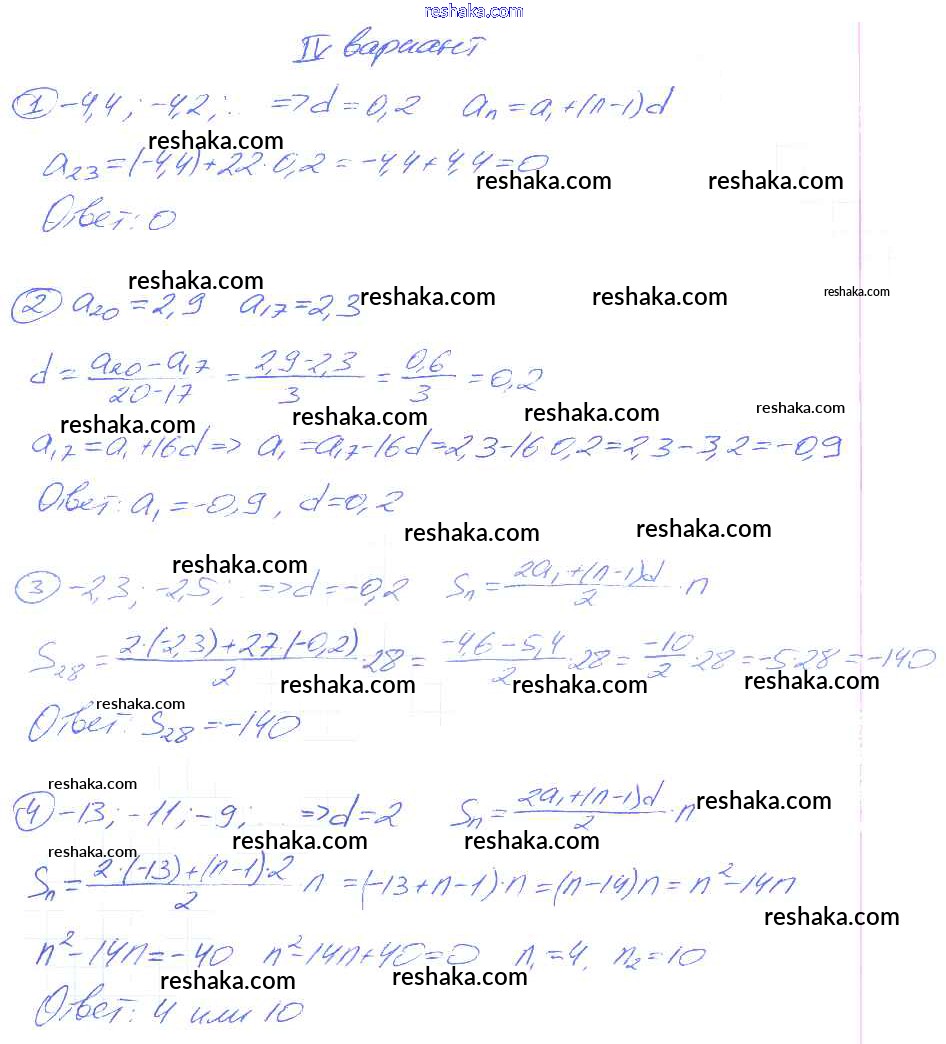 reshaka.com
IV вариант
① -4,4; -4,2; ... => d = 0,2 aₙ = a₁ + (n-1)d
reshaka.com
a₂₃ = (-4,4) + 22·0,2 = -4,4 + 4,4 = 0
reshaka.com reshaka.com
Ответ: 0
reshaka.com
② a₂₀ = 2,9 a₁₇ = 2,3
reshaka.com reshaka.com reshaka.com
d = (a₂₀ - a₁₇)/(20-17) = (2,9-2,3)/3 = 0,6/3 = 0,2
reshaka.com reshaka.com reshaka.com reshaka.com
a₁₇ = a₁ + 16d => a₁ = a₁₇ - 16d = 2,3 - 16 0,2 = 2,3 - 3,2 = -0,9
Ответ: a₁ = -0,9, d = 0,2
reshaka.com reshaka.com
reshaka.com
③ -2,3; -2,5; ... => d = -0,2 Sₙ = (2a₁ + (n-1)d)/2 · n
S₂₈ = (2·(-2,3) + 27·(-0,2))/2 · 28 = (-4,6 - 5,4)/2 · 28 = -10/2 · 28 = -5·28 = -140
reshaka.com reshaka.com reshaka.com
reshaka.com
Ответ: S₂₈ = -140
reshaka.com
④ -13; -11; -9; ... => d = 2 Sₙ = (2a₁ + (n-1)d)/2 · n
reshaka.com
reshaka.com reshaka.com reshaka.com
Sₙ = (2·(-13) + (n-1)·2)/2 n = (-13 + n - 1)·n = (n-14)n = n² - 14n
reshaka.com
n² - 14n = -40 n² - 14n + 40 = 0 n₁ = 4, n₂ = 10
reshaka.com reshaka.com
Ответ: 4 или 10